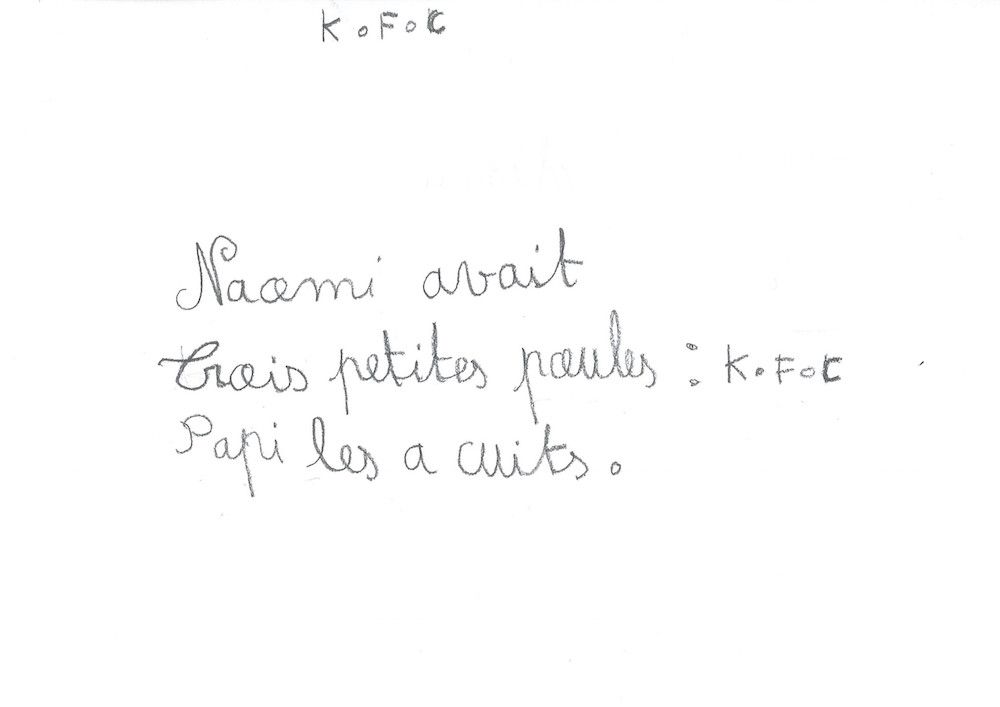 K.F.C
Naomi avait
trois petites poules : K.F.C
Papi les a cuits.